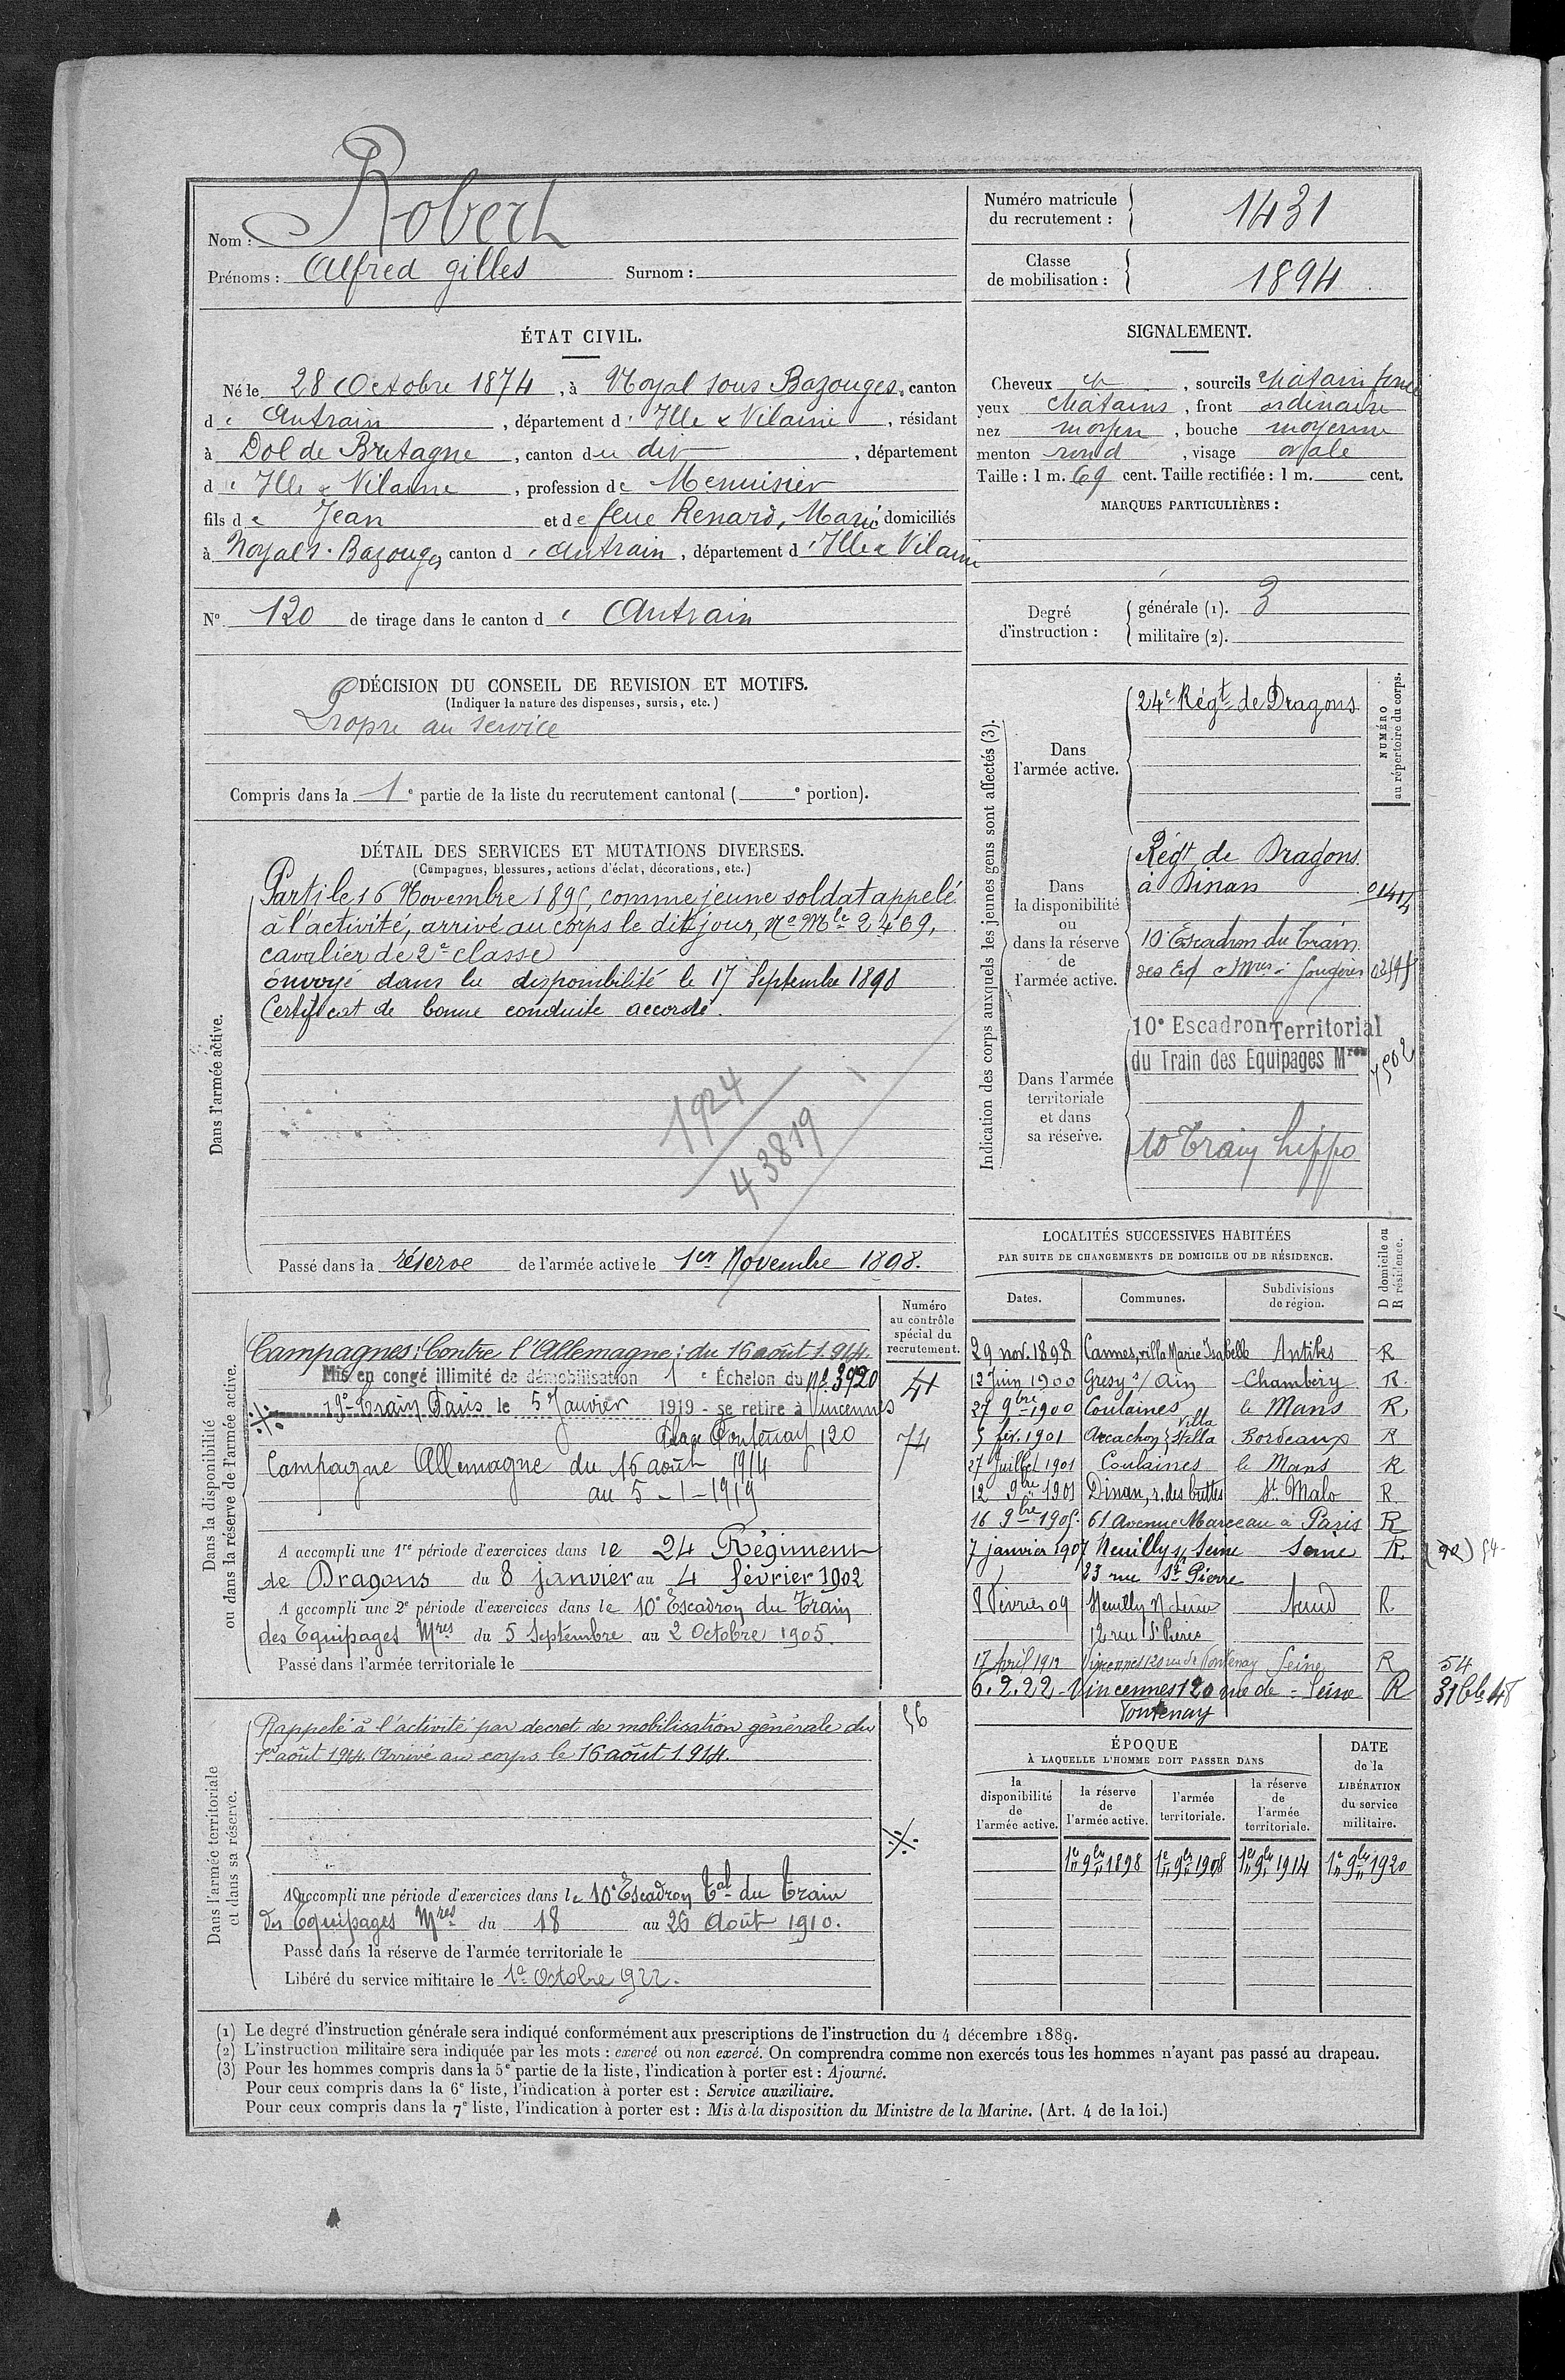 Nom : Robert
Prénoms : Alfred Gilles Surnom :
Numéro matricule du recrutement : 1431
Classe de mobilisation : 1894
ÉTAT CIVIL.
Né le 28 Octobre 1874, à Noyal sous Bazouges, canton
d'Antrain, département d'Ille & Vilaine, résidant
à Dol de Bretagne, canton du dit, département
d'Ille & Vilaine, profession de Menuisier
fils de Jean et de feue Renard, Marie domiciliés
à Noyal s. Bazouges canton d'Antrain, département d'Ille & Vilaine
N° 120 de tirage dans le canton d'Antrain
SIGNALEMENT.
Cheveux et, sourcils châtain foncé
yeux châtains, front ordinaire
nez moyen, bouche moyenne
menton rond, visage ovale
Taille : 1 m. 69 cent. Taille rectifiée : 1 m. cent.
MARQUES PARTICULIÈRES :
Degré d'instruction : générale (1). 3
militaire (2).
DÉCISION DU CONSEIL DE REVISION ET MOTIFS.
(Indiquer la nature des dispenses, sursis, etc.)
Propre au service
Compris dans la 1e partie de la liste du recrutement cantonal ( e portion).
DÉTAIL DES SERVICES ET MUTATIONS DIVERSES.
(Campagnes, blessures, actions d'éclat, décorations, etc.)
Dans l'armée active.
Parti le 16 Novembre 1895, comme jeune soldat appelé
à l'activité, arrivé au corps le dit jour, No Mle 2469,
cavalier de 2e classe
envoyé dans la disponibilité le 17 Septembre 1898
Certificat de bonne conduite accordé.
1924
43819
Passé dans la réserve de l'armée active le 1er Novembre 1898.
Indication des corps auxquels les jeunes gens sont affectés (3).
NUMÉRO au répertoire du corps.
Dans l'armée active.
24e Régt de Dragons
Dans la disponibilité ou dans la réserve de l'armée active.
Régt de Dragons
à Dinan
10e Escadron du Train
des Eq. Mres à Fougères
Dans l'armée territoriale et dans sa réserve.
10e Escadron Territorial
du Train des Equipages Mres
10 Train hippo
LOCALITÉS SUCCESSIVES HABITÉES
PAR SUITE DE CHANGEMENTS DE DOMICILE OU DE RÉSIDENCE.
Dates. Communes. Subdivisions de région. D domicile ou R résidence.
29 nov. 1898 Cannes, villa Marie Isabelle Antibes R
12 Juin 1900 Gresy s/ Aix Chambéry R.
27 9bre 1900 Coulaines le Mans R,
5 fév. 1901 Arcachon villa Stella Bordeaux R
27 Juillet 1901 Coulaines le Mans R
12 9bre 1901 Dinan, r. des buttes St Malo R.
16 9bre 1905. 61 Avenue Marceau à Paris R
7 janvier 1907 Neuilly s/ Seine Seine R. (92) 54
23 rue St Pierre
8 Février 09 Neuilly s/ Seine R.
12 rue St Pierre
17 Avril 1912 Vincennes 120 rue de Fontenay Seine R 54
6.2.22 Vincennes 120 rue de Fontenay Seine R
Dans la disponibilité ou dans la réserve de l'armée active.
Numéro au contrôle spécial du recrutement.
Campagnes: Contre l'Allemagne : du 16 août 1914.
Mis en congé illimité de démobilisation 1e Échelon du No 3920
19e Train Paris le 5 Janvier 1919 - se retire à Vincennes
Fontenay 120
41
74
Campagne Allemagne du 16 août 1914
au 5-1-1919
A accompli une 1re période d'exercices dans le 24 Régiment
de Dragons du 8 janvier au 4 février 1902
A accompli une 2e période d'exercices dans le 10e Escadron du Train
des Equipages Mres du 5 Septembre au 2 Octobre 1905.
Passé dans l'armée territoriale le
Dans l'armée territoriale et dans sa réserve.
Rappelé à l'activité par décret de mobilisation générale du
1er août 1914. Arrivé au corps le 16 août 1914.
56
A accompli une période d'exercices dans le 10e Escadron Tal du Train
des Equipages Mres du 18 au 26 Août 1910.
Passé dans la réserve de l'armée territoriale le
Libéré du service militaire le 1er Octobre 1922.
ÉPOQUE
À LAQUELLE L'HOMME DOIT PASSER DANS
la disponibilité de l'armée active. la réserve de l'armée active. l'armée territoriale. la réserve de l'armée territoriale. DATE de la LIBÉRATION du service militaire.
1er 9bre 1898 1er 9bre 1908 1er 9bre 1914 1er 9bre 1920
(1) Le degré d'instruction générale sera indiqué conformément aux prescriptions de l'instruction du 4 décembre 1889.
(2) L'instruction militaire sera indiquée par les mots : exercé ou non exercé. On comprendra comme non exercés tous les hommes n'ayant pas passé au drapeau.
(3) Pour les hommes compris dans la 5e partie de la liste, l'indication à porter est : Ajourné.
Pour ceux compris dans la 6e liste, l'indication à porter est : Service auxiliaire.
Pour ceux compris dans la 7e liste, l'indication à porter est : Mis à la disposition du Ministre de la Marine. (Art. 4 de la loi.)